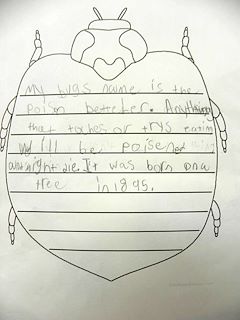 My bugs name is the
poisin beterler. Anything
that toches or trys eating
it will be poisened
and might die. It was born on a
tree in 1895.